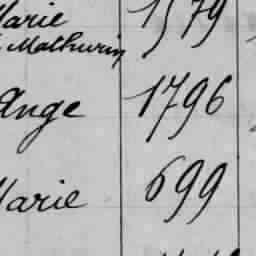 Marie 1579
Mathurin
Ange 1796
Marie 699